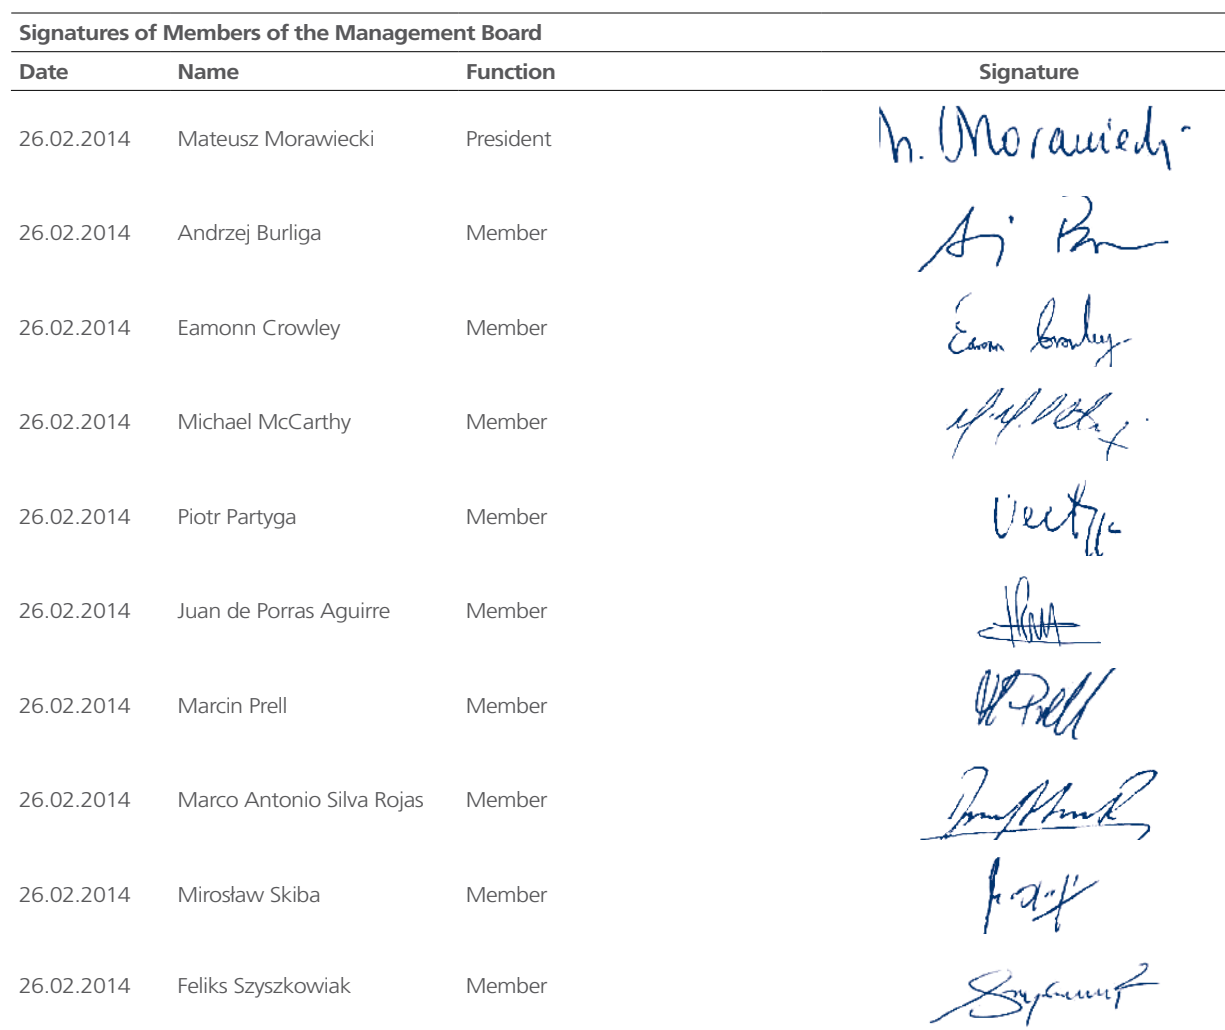 Signatures of Members of the Management Board
Date Name Function Signature
26.02.2014 Mateusz Morawiecki President M. Morawiecki
26.02.2014 Andrzej Burliga Member
26.02.2014 Eamonn Crowley Member Eamonn Crowley
26.02.2014 Michael McCarthy Member
26.02.2014 Piotr Partyga Member
26.02.2014 Juan de Porras Aguirre Member
26.02.2014 Marcin Prell Member M Prell
26.02.2014 Marco Antonio Silva Rojas Member
26.02.2014 Mirosław Skiba Member
26.02.2014 Feliks Szyszkowiak Member